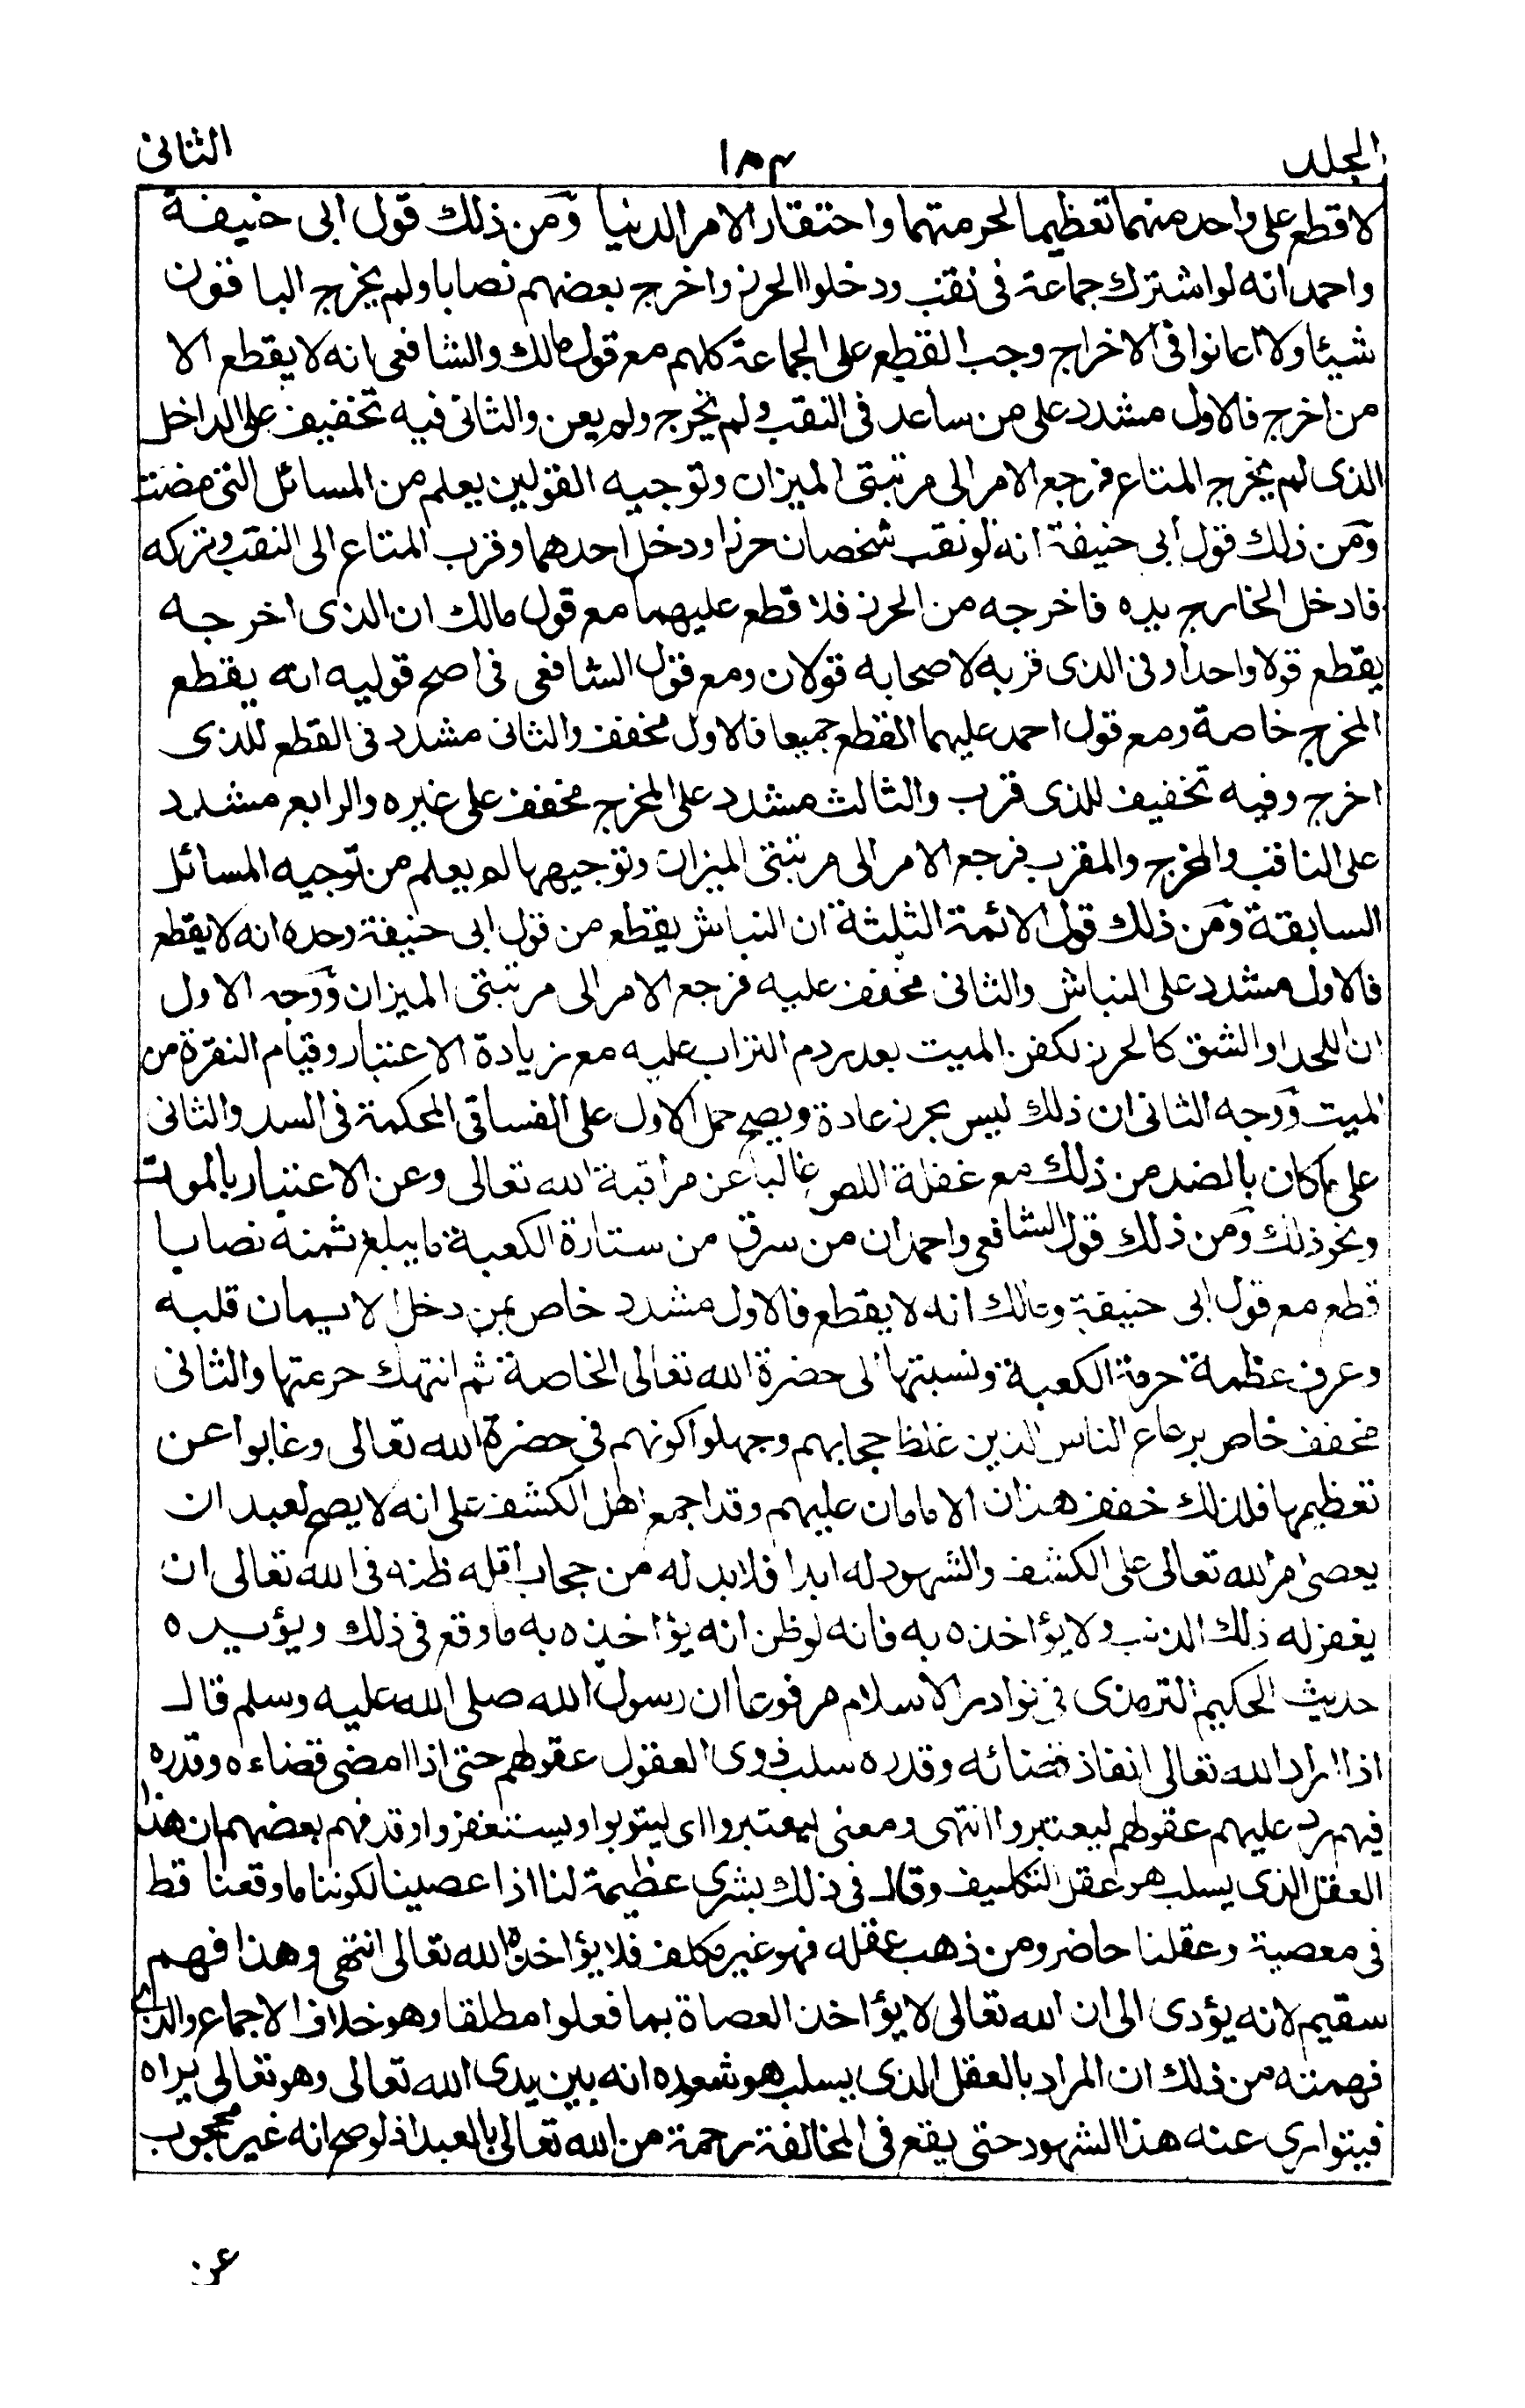 المجلد ١٨٤ الثانى
لا قطع على واحد منهما تعظيما لحرمتهما واحتقار الامر الدنيا ومن ذلك قول ابى حنيفة
واحمد انه لو اشترك جماعة فى نقب ودخلوا الحرز واخرج بعضهم نصابا ولم يخرج الباقون
شيئا ولا اعانوا فى الاخراج وجب القطع على الجماعة كلهم مع قول مالك والشافعى انه لا يقطع الا
من اخرج فالاول مشدد على من ساعد فى النقب ولم يخرج ولم يعن والثانى فيه تخفيف على الداخل
الذى لم يخرج المتاع فرجع الامر الى مرتبتى الميزان وتوجيه القولين يعلم من المسائل التى مضت
ومن ذلك قول ابى حنيفة انه لو نقب شخصان حرزا ودخل احدهما وقرب المتاع الى النقب وتركه
فادخل الخارج يده فاخرجه من الحرز فلا قطع عليهما مع قول مالك ان الذى اخرجه
يقطع قولا واحدا وفى الذى قربه لاصحابه قولان ومع قول الشافعى فى اصح قوليه انه يقطع
المخرج خاصة ومع قول احمد عليهما القطع جميعا فالاول مخفف والثانى مشدد فى القطع للذى
اخرج وفيه تخفيف للذى قرب والثالث مشدد على المخرج مخفف على غيره والرابع مشدد
على الناقب والمخرج والمقرب فرجع الامر الى مرتبتى الميزان وتوجيهها لم يعلم من توجيه المسائل
السابقة ومن ذلك قول الائمة الثلثة ان النباش يقطع من قول ابى حنيفة وحده انه لا يقطع
فالاول مشدد على النباش والثانى مخفف عليه فرجع الامر الى مرتبتى الميزان ووجه الاول
ان اللحد او الشق كالحرز لكفن الميت بعد ردم التراب عليه مع زيادة الاعتبار وقيام النقرة من
الميت ووجه الثانى ان ذلك ليس بحرز عادة ويصح حمل الاول على الفساقى المحكمة فى السد والثانى
على ما كان بالضد من ذلك مع غفلة اللص غالبا عن مراقبة الله تعالى وعن الاعتبار بالموت
ونحو ذلك ومن ذلك قول الشافعى واحمد ان من سرق من ستارة الكعبة ما يبلغ ثمنه نصابا
قطع مع قول ابى حنيفة ومالك انه لا يقطع فالاول مشدد خاص بمن دخل الايمان قلبه
وعرف عظمة حرمة الكعبة ونسبتها الى حضرة الله تعالى الخاصة ثم انتهك حرمتها والثانى
مخفف خاص برعاع الناس الذين غلظ حجابهم وجهلوا كونهم فى حضرة الله تعالى وغابوا عن
تعظيمها فلذلك خفف هذان الامامان عليهم وقد اجمع اهل الكشف على انه لا يصح لعبد ان
يعصى امر الله تعالى على الكشف والشهود له ابدا فلا بد له من حجاب اقله ظنه فى الله تعالى ان
يغفر له ذلك الذنب ولا يؤاخذه به فانه لو ظن انه يؤاخذه به ما وقع فى ذلك ويؤيده
حديث الحكيم الترمذى فى نوادر الاسلام مرفوعا ان رسول الله صلى الله عليه وسلم قال
اذا اراد الله تعالى انفاذ قضائه وقدره سلب ذوى العقول عقولهم حتى اذا امضى قضاءه وقدره
فيهم رد عليهم عقولهم ليعتبروا انتهى ومعنى ليعتبروا اى ليتوبوا ويستغفروا وقد فهم بعضهم ان هذا
العقل الذى يسلب هو عقل التكليف وقال فى ذلك بشرى عظيمة لنا اذا عصينا لكوننا ما وقعنا قط
فى معصية وعقلنا حاضر ومن ذهب عقله فهو غير مكلف فلا يؤاخذه الله تعالى انتهى وهذا فهم
سقيم لانه يؤدى الى ان الله تعالى لا يؤاخذ العصاة بما فعلوا مطلقا وهو خلاف الاجماع والذى
فهمته من ذلك ان المراد بالعقل الذى يسلب هو شعوره انه بين يدى الله تعالى وهو تعالى يراه
فيتوارى عنه هذا الشهود حتى يقع فى المخالفة رحمة من الله تعالى بالعبد اذ لو صح انه غير محجوب
عن